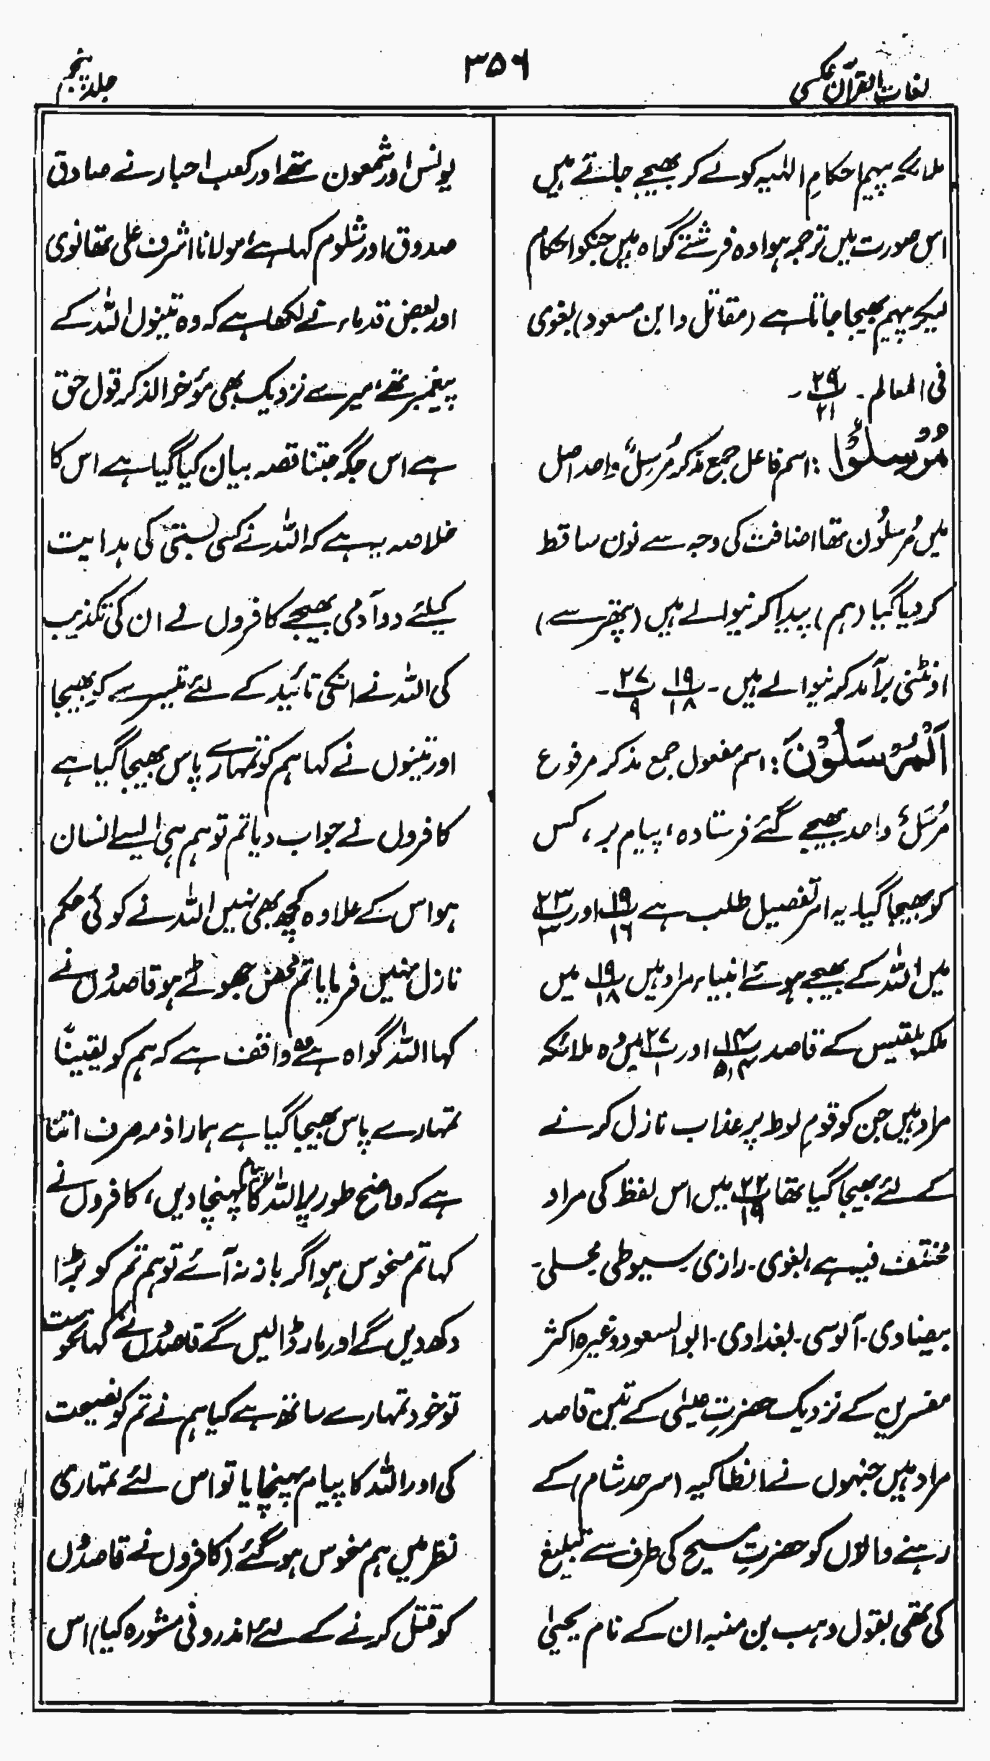 لغات القرآن عکسی
۳۵۶
جلد پنجم
ملائکہ پیہم احکامِ الٰہیہ کو لے کر بھیجے جاتے ہیں
اس صورت میں ترجمہ ہوا وہ فرشتے گواہ ہیں جنکو احکام
لیکر پیہم بھیجا جاتا ہے (مقاتل و ابن مسعود) بغوی
فی المعالم ـ ۲۹/۲۱ ـ
مُرْسِلُوْا : اسم فاعل جمع مذکر مُرسِلٌ واحد اصل
میں مُرسِلُون تھا اضافت کی وجہ سے نون ساقط
کر دیا گیا (ہم) پیدا کرنیوالے ہیں (پتھر سے)
اونٹنی برآمد کرنیوالے ہیں ـ ۱۹/۱۸ ۲۷/۹ ـ
اَلْمُرْسَلُوْنَ : اسم مفعول جمع مذکر مرفوع
مُرسَلٌ واحد بھیجے گئے فرستادہ، پیام بر، کس
کو بھیجا گیا۔ یہ امر تفصیل طلب ہے ۱۹/۱۶ اور ۲۳/۳
میں اللہ کے بھیجے ہوئے انبیاء مراد ہیں ۱۹/۱۸ میں
ملکہ بلقیس کے قاصد ۱۴/۵,۴ اور ۲۷/۱ میں وہ ملائکہ
مراد ہیں جن کو قومِ لوط پر عذاب نازل کرنے
کے لئے بھیجا گیا تھا ۲۲/۱۹ میں اس لفظ کی مراد
مختلف فیہ ہے، بغوی ـ رازی ـ سیوطی ـ محلی ـ
بیضاوی ـ آلوسی ـ بغدادی ـ ابو السعود وغیرہ اکثر
مفسرین کے نزدیک حضرتِ عیسٰی کے تین قاصد
مراد ہیں جنہوں نے انطاکیہ (سرحد شام) کے
رہنے والوں کو حضرتِ مسیح کی طرف سے تبلیغ
کی تھی بقول وہب بن منبہ ان کے نام یحییٰ
یونس اور شمعون تھے اور کعب احبار نے صادق
صدوق اور شلوم کہا ہے مولانا اشرف علی تھانوی
اور بعض قدماء نے لکھا ہے کہ وہ تینوں اللہ کے
پیغمبر تھے، میرے نزدیک بھی مؤخر الذکر قول حق
ہے اس جگہ جتنا قصہ بیان کیا گیا ہے اس کا
خلاصہ یہ ہے کہ اللہ نے کسی بستی کی ہدایت
کیلئے دو آدمی بھیجے کافروں نے ان کی تکذیب
کی اللہ نے انکی تائید کے لئے تیسرے کو بھیجا
اور تینوں نے کہا ہم کو تمہارے پاس بھیجا گیا ہے
کافروں نے جواب دیا تم تو ہم ہی ایسے انسان
ہو اس کے علاوہ کچھ بھی نہیں اللہ نے کوئی حکم
نازل نہیں فرمایا تم محض جھوٹے ہو قاصدوں نے
کہا اللہ گواہ ہے وہ واقف ہے کہ ہم کو یقینًا
تمہارے پاس بھیجا گیا ہے ہمارا ذمہ صرف اتنا
ہے کہ واضح طور پر اللہ کا پیام پہنچا دیں، کافروں نے
کہا تم منحوس ہو اگر باز نہ آئے تو ہم تم کو بڑا
دکھ دیں گے اور مار ڈالیں گے قاصدوں نے کہا نحوست
تو خود تمہارے ساتھ ہے کیا ہم نے تم کو نصیحت
کی اور اللہ کا پیام پہنچایا تو اس لئے تمہاری
نظر میں ہم منحوس ہو گئے (کافروں نے قاصدوں
کو قتل کرنے کے لئے اندرونی مشورہ کیا) اس